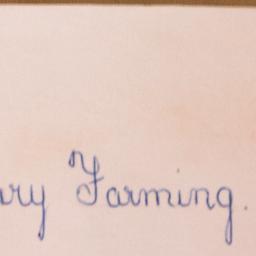 ry Farming.